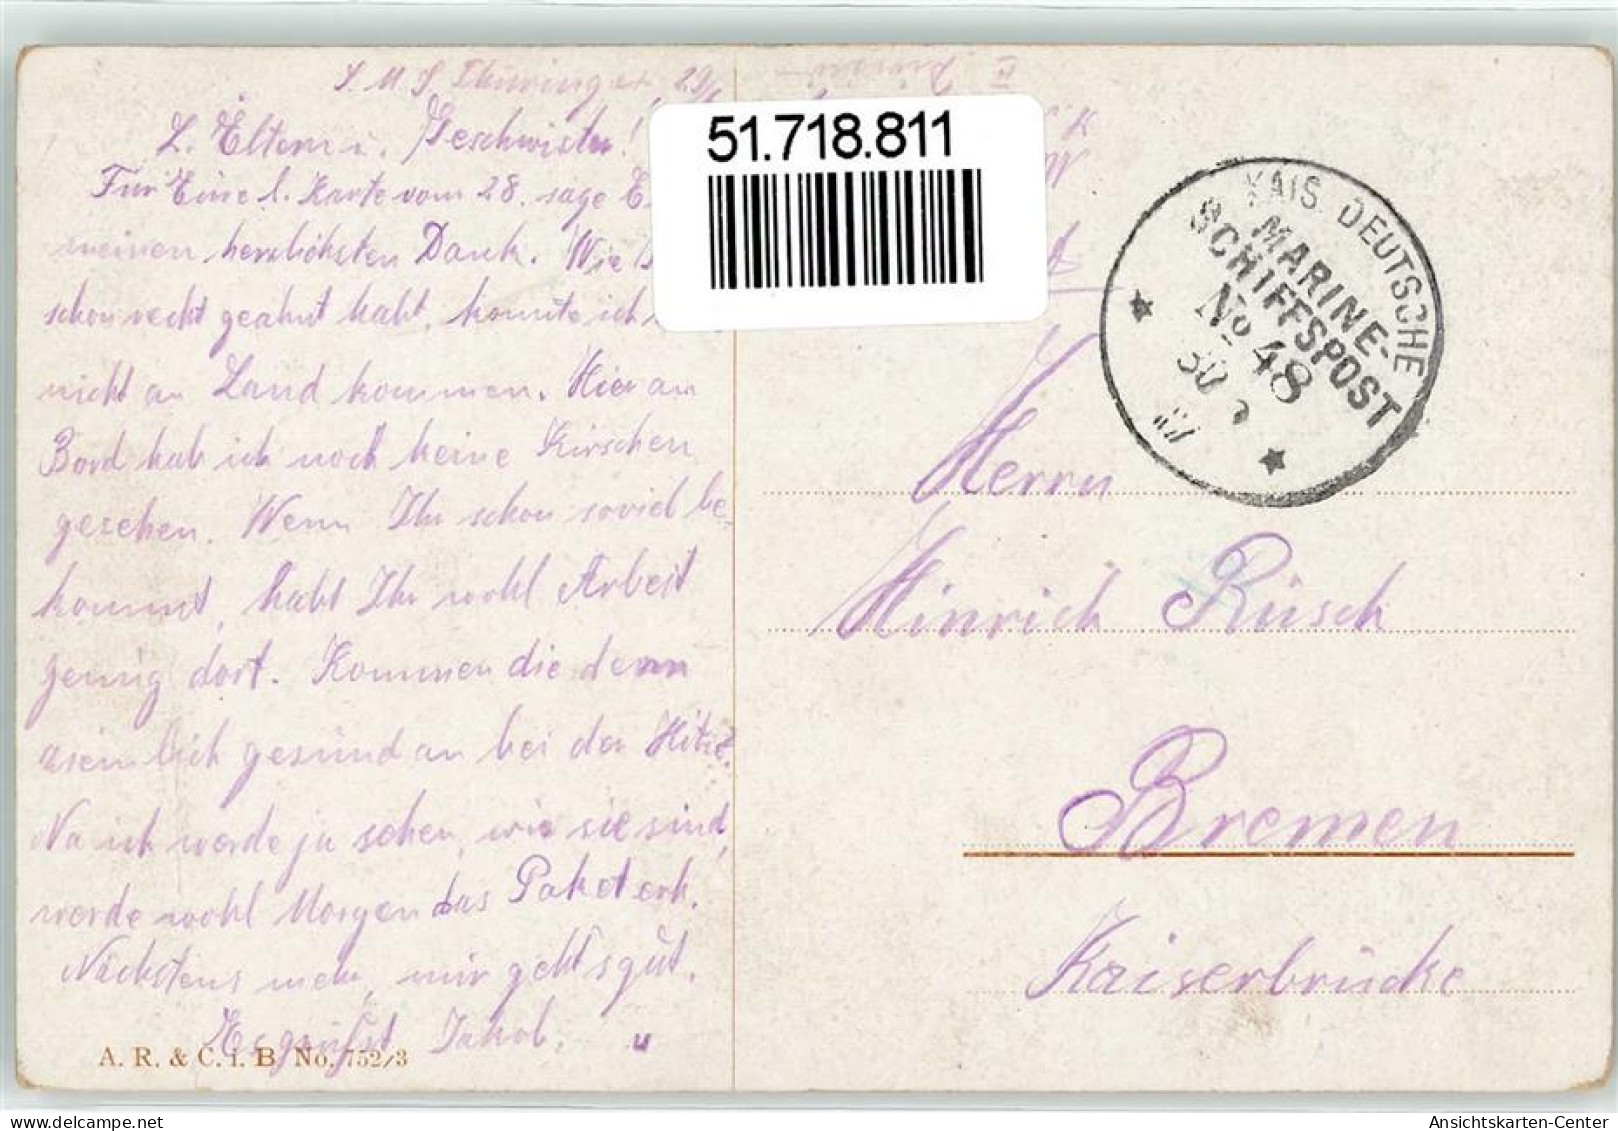 S.M.S. Thüringen 29/
L. Eltern u. Geschwister!
Für Eure l. Karte vom 28. sage
meinen herzlichsten Dank. Wie
schon recht geahnt habt, konnte ich
nicht an Land kommen. Hier an
Bord hab ich noch keine Kirschen
gesehen. Wenn Ihr schon soviel be-
kommt, habt Ihr wohl Arbeit
genug dort. Kommen die denn
ziemlich gesund an bei der Hitze.
Na ich werde ja sehen, wie sie sind,
werde wohl Morgen das Paket erh.
Nächstens mehr, mir geht's gut.
Es grüßt Jakob.
A. R. & C. i. B. No. 752/3
51.718.811
KAIS. DEUTSCHE
MARINE-
SCHIFFSPOST
No 48
30
Herrn
Hinrich Rüsch
Bremen
Kaiserbrücke
oldthing.de
Ansichtskarten-Center